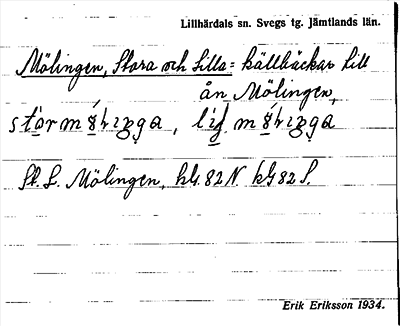 Lillhärdals sn. Svegs tg. Jämtlands län.
Mölingen, Stora och Lilla = källbäckar till
ån Mölingen,
St. L. Mölingen, kbl. 82 N. kbl 82 S.
Erik Eriksson 1934.